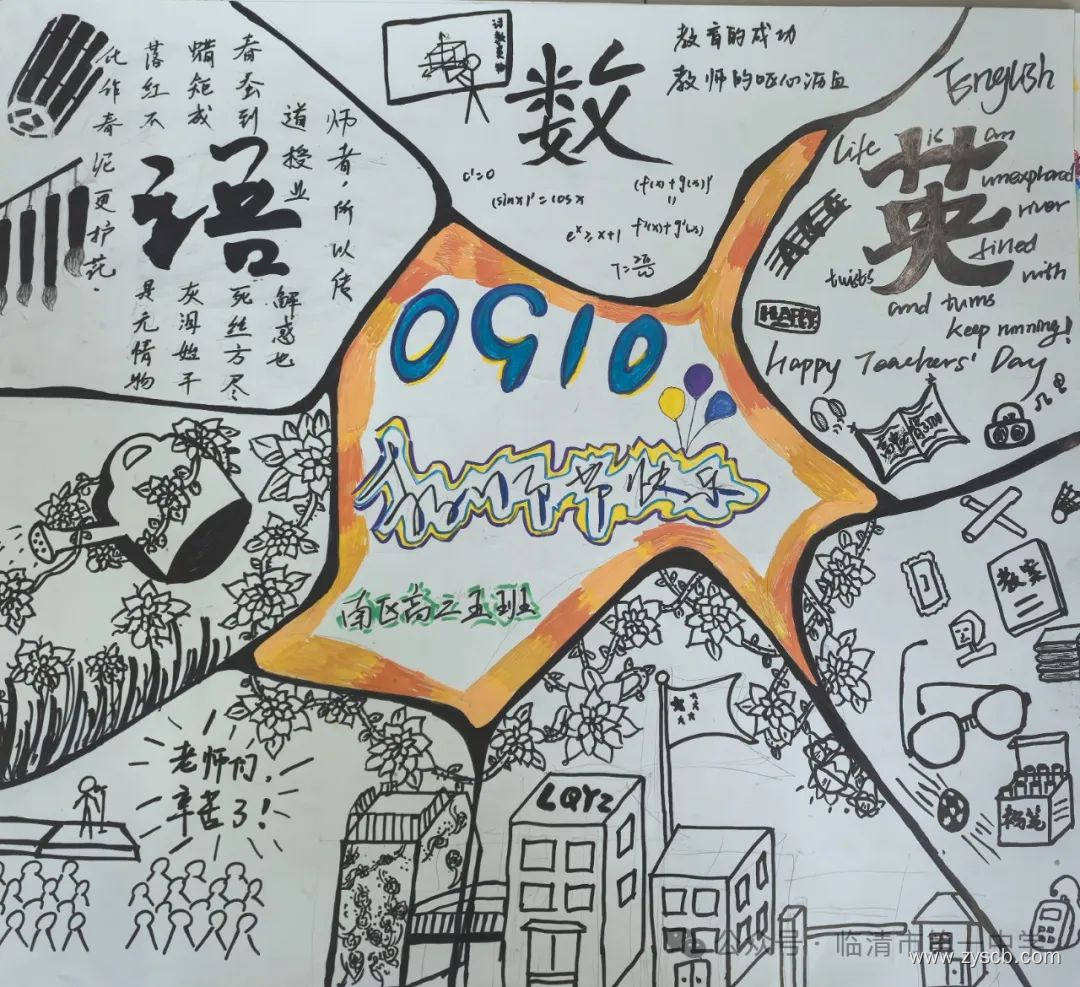 师者，所以传
道授业
解惑也
春蚕到
死丝方尽
蜡炬成
灰泪始干
落红不
是无情物
化作春
泥更护花.
语
数
教育的成功
教师的呕心沥血
c'=0
(sinx)'=cosx
(f(x)+g(x))'
=
f'(x)+g'(x)
e^x≥x+1
T=2π/ω
English
英
Life is an
unexplored
river
filled
with
twists
and turns
keep running!
HAPPY
Happy Teachers' Day
0910
教师节快乐
南区高二五班
教案
粉笔
老师们,
辛苦了!
LQYZ
公众号·临清市第一中学
www.zyscb.com